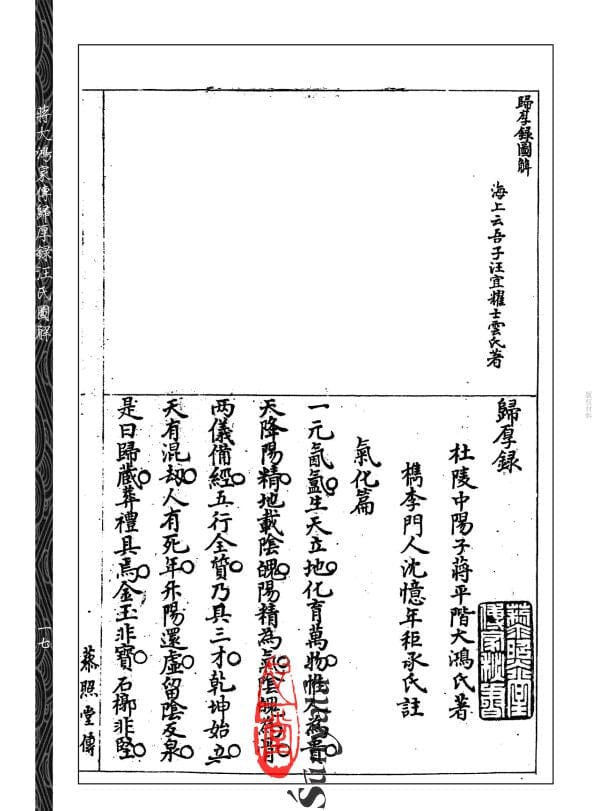 歸厚錄圖解
海上云吾子汪宜耀士雲氏著
歸厚錄
杜陵中陽子蔣平階大鴻氏著
檇李門人沈憶年秬承氏註
氣化篇
一元氤氳生天立地化育萬物惟人為貴
天降陽精地載陰魄陽精為氣陰魄為骨
两儀備經五行全質乃具三才乾坤始立
天有混劫人有死年升陽還虛留陰反泉
是曰歸藏葬禮具焉金玉非寶石槨非堅
蔡照堂傳
蔣大鴻家傳歸厚錄汪氏圖解
一七
版权材料